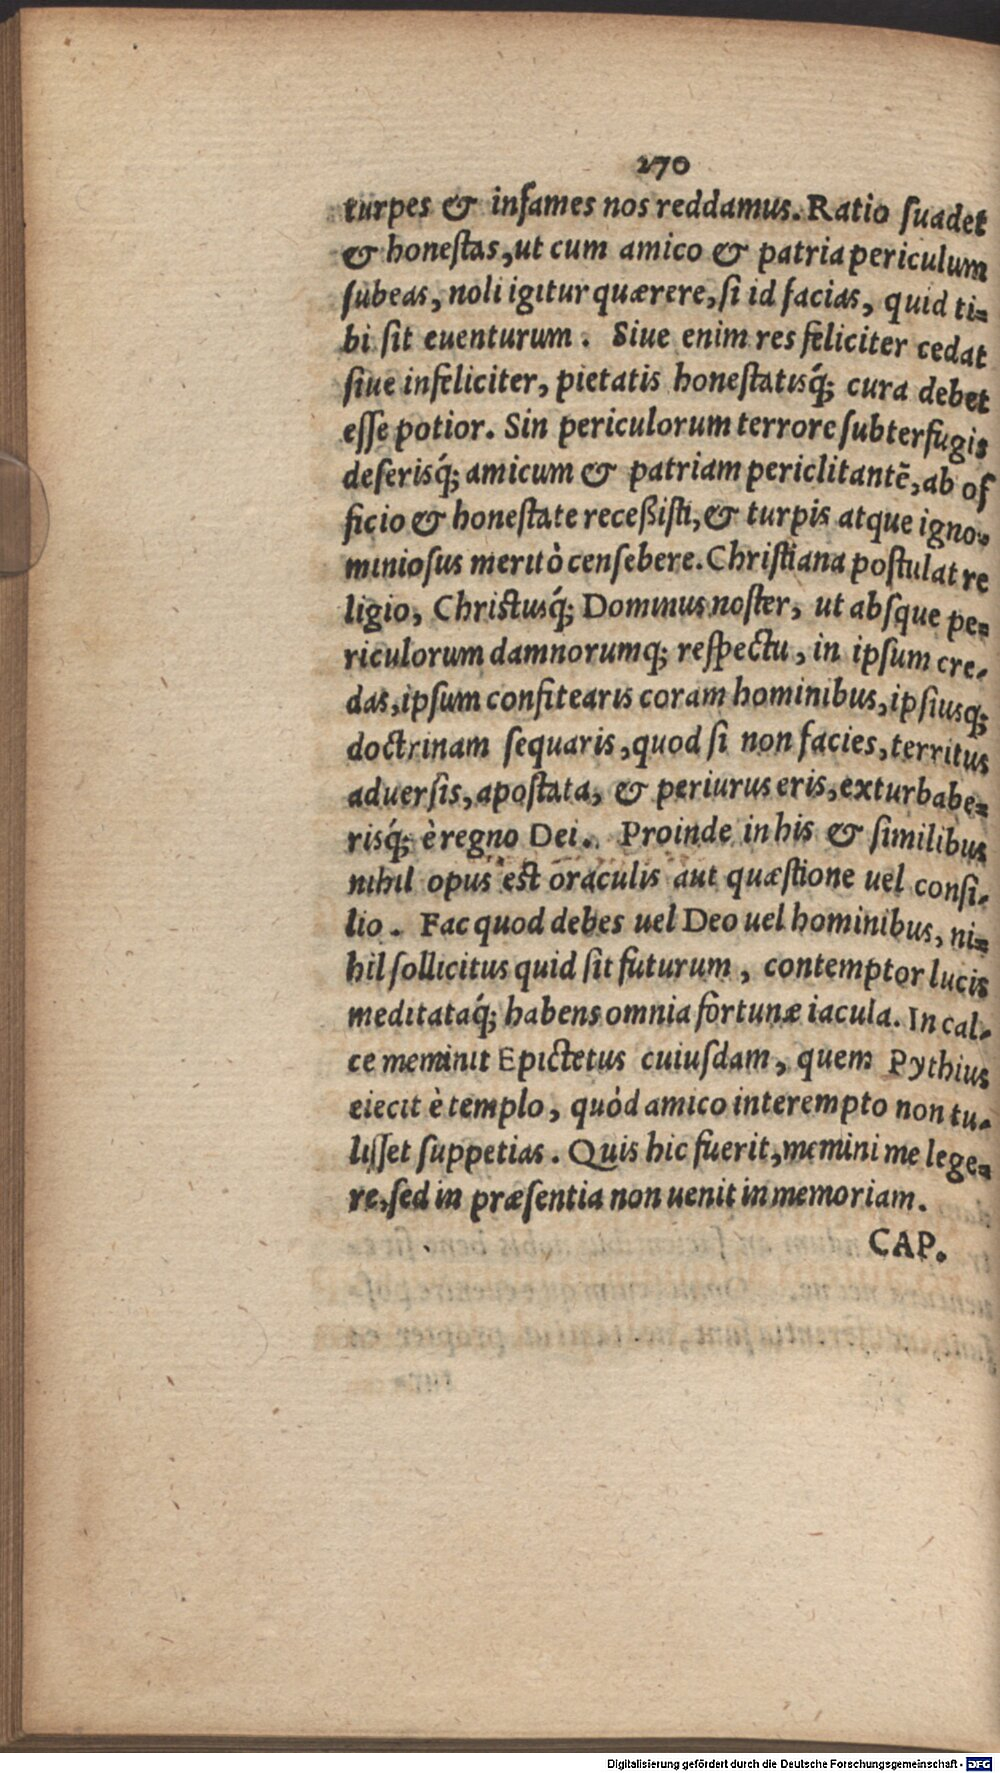 270
turpes & infames nos reddamus. Ratio ſuadet
& honeſtas, ut cum amico & patria periculum
ſubeas, noli igitur quærere, ſi id facias, quid ti=
bi ſit euenturum. Siue enim res feliciter cedat
ſiue infeliciter, pietatis honeſtatisq́; cura debet
eſſe potior. Sin periculorum terrore ſubterfugis
deſerisq́; amicum & patriam periclitantẽ, ab of
ficio & honeſtate receßiſti, & turpis atque igno=
minioſus meritò cenſebere. Chriſtiana poſtulat re
ligio, Chriſtusq́; Dominus noſter, ut abſque pe=
riculorum damnorumq; reſpectu, in ipſum cre=
das, ipſum confitearis coram hominibus, ipſiusq;
doctrinam ſequaris, quod ſi non facies, territus
aduerſis, apoſtata, & periurus eris, exturbabe=
risq́; è regno Dei. Proinde in his & ſimilibus
nihil opus est oraculis aut quæſtione uel conſi=
lio. Fac quod debes uel Deo uel hominibus, ni=
hil ſollicitus quid ſit futurum, contemptor lucis
meditataq́; habens omnia fortunæ iacula. In cal=
ce meminit Epictetus cuiuſdam, quem Pythius
eiecit è templo, quòd amico interempto non tu=
liſſet ſuppetias. Quis hic fuerit, memini me lege=
re, ſed in præſentia non uenit in memoriam.
CAP.
Digitalisierung gefördert durch die Deutsche Forschungsgemeinschaft - DFG